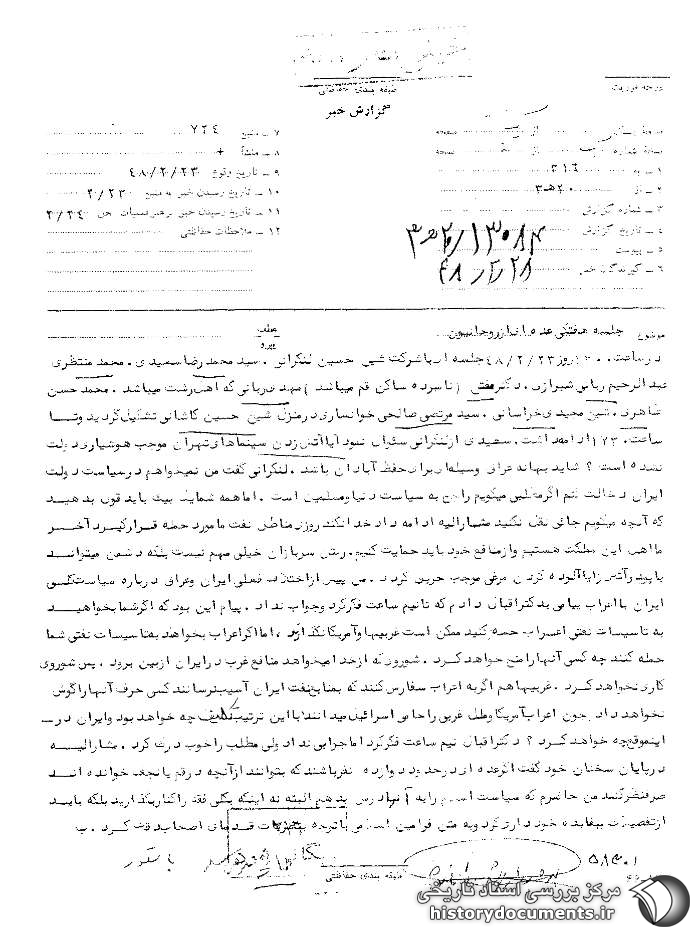 درجه فوریت
طبقه بندی حفاظتی
گزارش خبر
۷ ـ منبع ۷۲۴
۸ ـ منشأ +
۹ ـ تاریخ وقوع ۴۸/۲/۲۳
۱۰ ـ تاریخ رسیدن خبر به منبع ۲/۲۳
۱۱ ـ تاریخ رسیدن خبر به رهبر عملیات ۲/۲۴
۱۲ ـ ملاحظات حفاظتی
۱ ـ به ۳۱۶
۲ ـ از ۲۰ ه‍ ۳
۳ ـ شماره گزارش
۴ ـ تاریخ گزارش
۵ ـ پیوست
۶ ـ گیرندگان خبر
موضوع جلسه هفتگی عده‌ای از روحانیون
عطف
پیرو
در ساعت روز ۴۸/۲/۲۳ جلسه‌ای با شرکت شیخ حسین لنکرانی . سید محمد رضا سعیدی . محمد منتظری
عبدالرحیم ربانی شیرازی . دکتر مفتح (نامبرده ساکن قم میباشد) مهدی ربانی که اهل رشت میباشد . محمد حسن
طاهری . شیخ مجیدی خراسانی . سید مرتضی صالحی خوانساری در منزل شیخ حسین کاشانی تشکیل گردید و تا
ساعت ادامه داشت . سعیدی از لنکرانی سئوال نمود آیا آتش زدن سینماهای تهران موجب هوشیاری دولت
نشده است ؟ شاید بهانه عراق وسیله‌ای برای حفظ آبادان باشد . لنکرانی گفت من نمیخواهم در سیاست دولت
ایران دخالت کنم اگر مطلبی میگویم راجع به سیاست دنیا و مسلمین است . اما همه شماها باید قول بدهید
که آنچه میگویم جائی نقل نکنید مشارالیه ادامه داد خدا نکند روزی مناطق نفت ما مورد حمله قرار گیرد آخر
ما اهل این مملکت هستیم و از منافع خود باید حمایت کنیم . سربازان خیلی مهم نیست بلکه دشمن میتواند
با موجب حریق گردد . من پیش از اختلاف فعلی ایران و عراق درباره سیاست کلی
ایران با اعراب پیامی به دکتر اقبال دادم که تا نیم ساعت فکر کرد و جواب نداد . پیام این بود که اگر شما بخواهید
به تاسیسات نفتی اعراب حمله کنید ممکن است غربیها و آمریکا نگذارند ، اما اگر اعراب بخواهند به تاسیسات نفتی شما
حمله کنند چه کسی آنها را منع خواهد کرد . شوروی که از خدا میخواهد منافع غرب در ایران از بین برود . پس شوروی
کاری نخواهد کرد . غربیها هم اگر به اعراب سفارش کنند که به منابع نفت ایران آسیب نرسانند کسی حرف آنها را گوش
نخواهد داد چون اعراب آمریکا و ملل غربی را حامی اسرائیل میدانند با این ترتیب تکلیف چه خواهد بود و ایران در
اینموقع چه خواهد کرد ؟ دکتر اقبال نیم ساعت فکر کرد اما جوابی نداد ولی مطلب را خوب درک کرد . مشارالیه
در پایان سخنان خود گفت اگر عده‌ای در حدود دوازده نفر باشند که بتوانند از آنچه در قم یا نجف خوانده‌اند
صرفنظر کنند من حاضرم که سیاست اسلام را به آنها درس بدهم البته نه اینکه بکلی فقه را کنار بگذارید بلکه باید
از تعصبات بیفایده خودداری کرد و به متن قوانین اسلامی با توجه به نظریات قدمای اصحاب دقت کرد .
طبقه بندی حفاظتی
مرکز بررسی اسناد تاریخی
historydocuments.ir